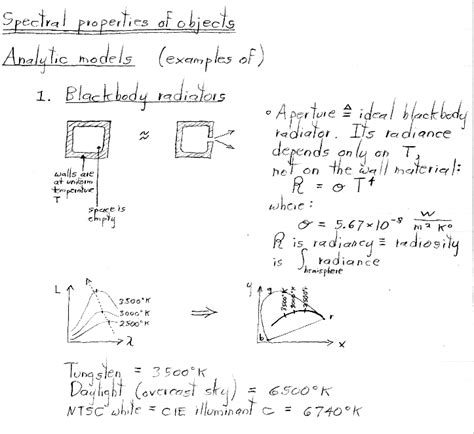 Spectral properties of objects
Analytic models (examples of)
1. Blackbody radiators
walls are
at uniform
temperature
T
space is
empty
≈
• Aperture ≜ ideal blackbody
radiator. Its radiance
depends only on T,
not on the wall material:
R = σ T⁴
where:
σ = 5.67×10⁻⁸ W/m² K°
R is radiancy ≡ radiosity
is ∫hemisphere radiance
L
3500°K
3000°K
2500°K
λ
⇒
y
g
3500°K
3000°K
2500°K
r
b
x
Tungsten = 3500°K
Daylight (overcast sky) = 6500°K
NTSC white = CIE illuminant C = 6740°K